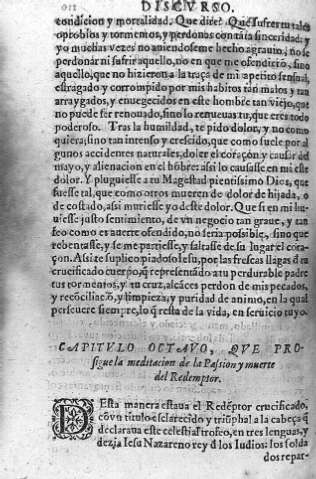 DISCVRSO.
condicion y mortalidad. Que dire? Que sufres tu tales
oprobios y tormentos, y perdonas con tãta sinceridad: y
yo muchas vezes no auiendoseme hecho agrauio, no se
perdonar ni sufrir aquello, no en que me ofendierõ, sino
aquello, que no hizieron a la traça de mi apetito sensual,
estragado y corrompido por mis habitos tan malos y tan
arraygados, y enuegecidos en este hombre tan viejo, que
no puede ser renouado, sino lo renueuas tu, que eres todo
poderoso. Tras la humildad, te pido dolor, y no como
quiera, sino tan intenso y crescido, que como suele por al
gunos accidentes naturales, doler el coraçon y causar des
mayo, y alienacion en el hõbre: assi lo causasse en mi este
dolor. Y pluguiesse a tu Magestad pientissimo Dios, que
fuesse tal, que como otros mueren de dolor de hijada, o
de costado, assi muriesse yo deste dolor. Que si en mi hu
uiesse justo sentimiento, de vn negocio tan graue, y tan
feo como es auerte ofendido, no seria possible, sino que
rebentasse, y se me partiesse, y faltasse de su lugar el cora-
çon. Assi te suplico piadoso Iesu, por las frescas llagas dl
crucificado cuerpo, q̃ representãdo a tu perdurable padre
tus tormentos, y tu cruz, alcãces perdon de mis pecados,
y recõciliaciõ, y limpieza, y puridad de animo, en la qual
perseuere siempre, lo q̃ resta de la vida, en seruicio tuyo.
CAPITVLO OCTAVO, QVE PRO-
sigue la meditacion de la Passion y muerte
del Redemptor.
DEsta manera estaua el Redẽptor crucificado,
cõ vn titulo esclarecido y triũphal a la cabeça q̃
declaraua este celestial trofeo, en tres lenguas, y
dezia Iesu Nazareno rey d̃ los Iudios: los solda
dos repar-